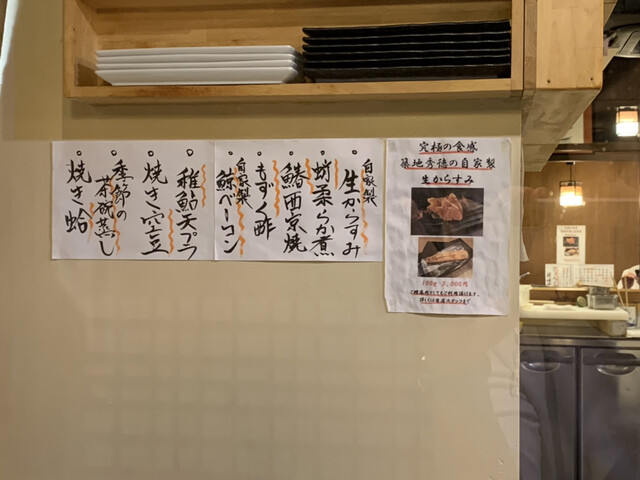 自家製
生からすみ
蛸柔らか煮
鰆西京焼
もずく酢
自家製
鯨ベーコン
稚鮎天プラ
焼き空豆
季節の茶碗蒸し
焼き蛤
究極の食感
築地秀徳の自家製
生からすみ